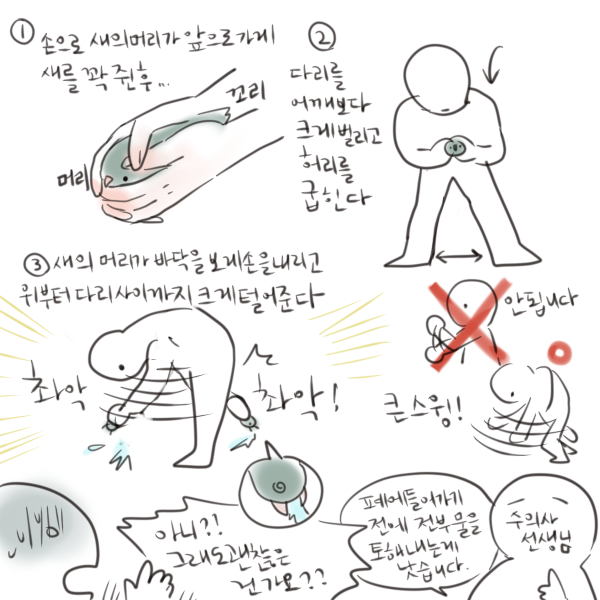 ① 손으로 새의머리가 앞으로가게
새를 꽉 쥔후...
꼬리
머리
②
다리를
어깨보다
크게벌리고
허리를
굽힌다
③ 새의 머리가 바닥을 보게손을내리고
위부터 다리사이까지 크게털어준다
촤악
촤악!
안됩니다
큰스윙!
아니?!
그래도괜찮은
건가요??
폐에들어가기
전에 전부물을
토해내는게
낫습니다.
수의사
선생님